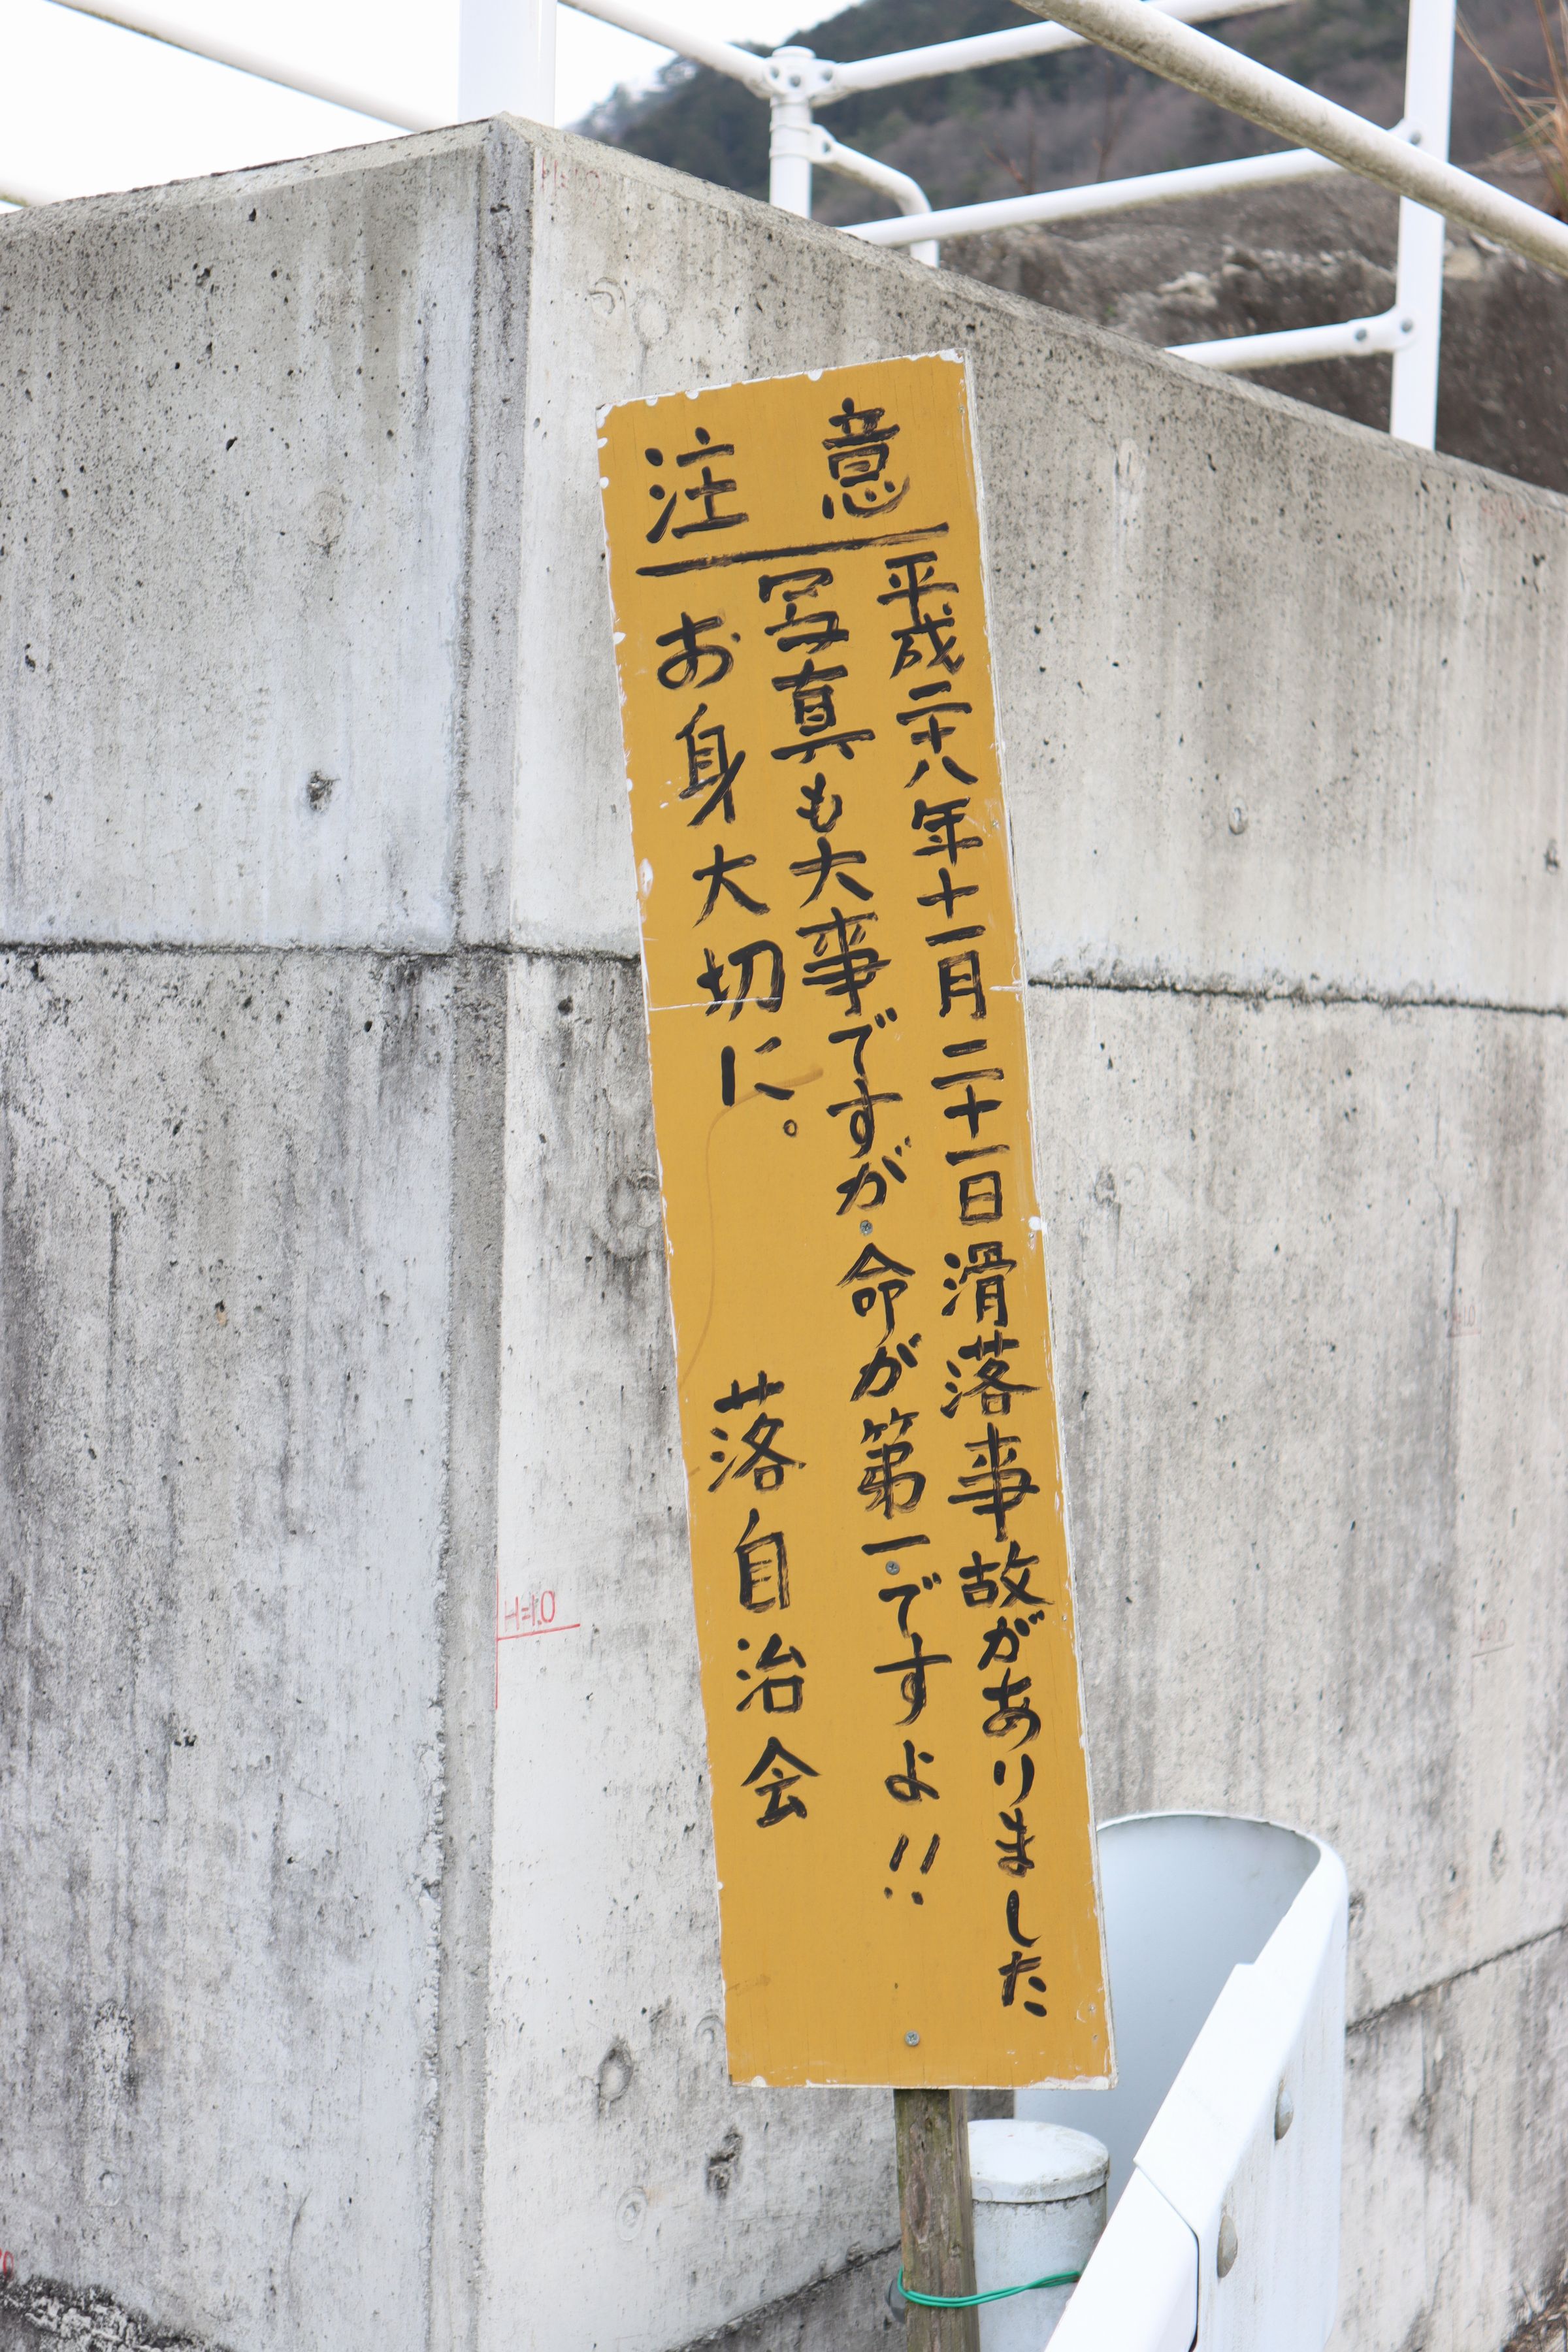 注 意
平成二十八年十一月二十一日滑落事故がありました
写真も大事ですが命が第一ですよ!!
お身大切に。
落自治会
H=1.0